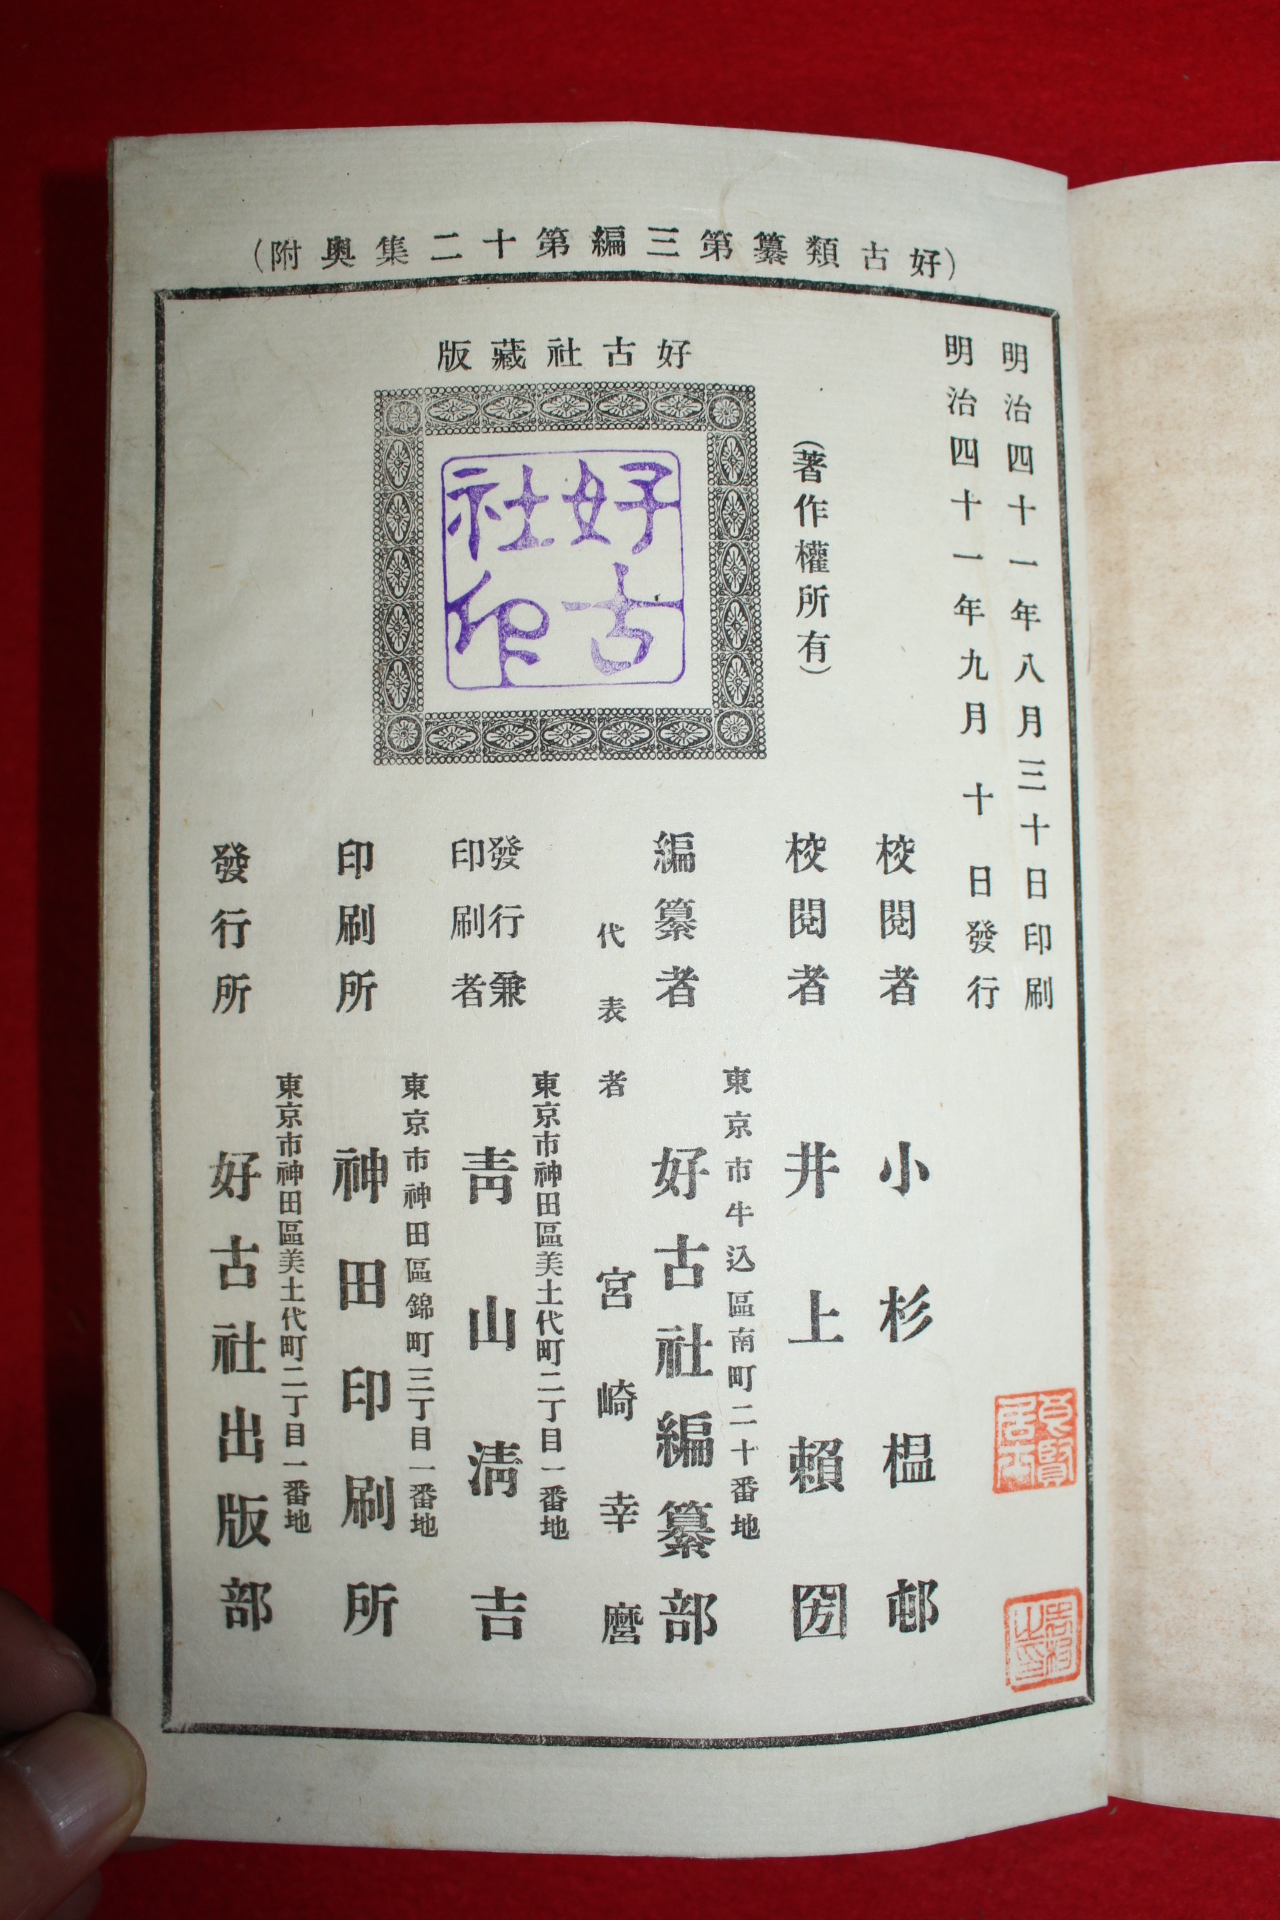 (好古類纂第三編第十二集奥附)
明治四十一年八月三十日印刷
明治四十一年九月十日發行
(著作權所有)
好古社藏版
好古社印
校閱者 小杉榲邨
校閱者 井上賴囶
東京市牛込區南町二十番地
編纂者 好古社編纂部
代表者 宮崎幸麿
東京市神田區美土代町二丁目一番地
發行兼印刷者 靑山淸吉
東京市神田區錦町三丁目一番地
印刷所 神田印刷所
東京市神田區美土代町二丁目一番地
發行所 好古社出版部